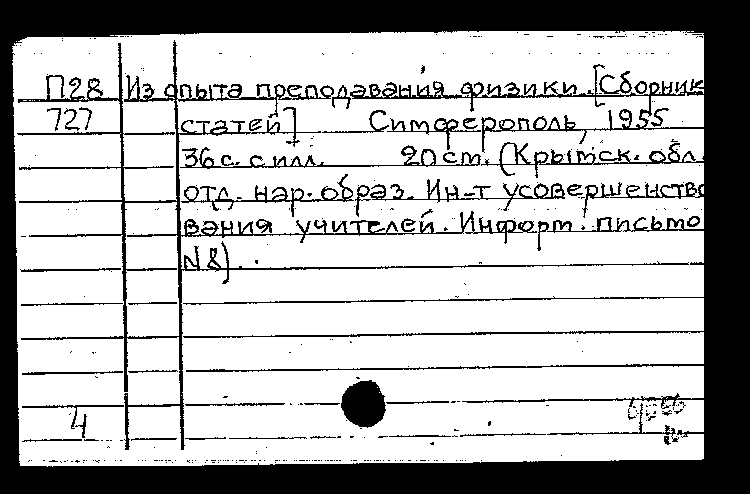 П28 Из опыта преподавания физики. [Сборник
727 статей] Симферополь, 1955
36 с. с илл. 20 см. (Крымск. обл.
отд. нар. образ. Ин-т усовершенство
вания учителей. Информ. письмо
N8).
4